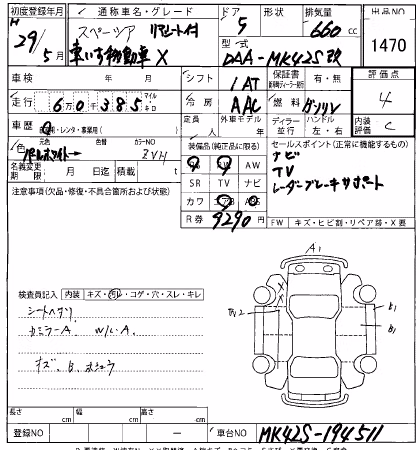 初度登録年月 通称車名・グレード ドア 形状 排気量 出品NO
H 29/5月 スペーシア リアシート付 車いす移動車 X 5 660cc 1470
型式 DAA-MK42S改
車検 年 月 シフト 1AT 保証書 有・無 評価点 4
走行 60385 マイル キロ 冷房 AAC 燃料 ガソリン 内装評価 C
車歴 自家用・レンタ・事業用( ) 定員 人 外車モデル 年 ディーラー 並行 ハンドル 左・右
色 元色 色替 カラーNO
パールホワイト ZVH
装備品(純正品に限る) セールスポイント(正常に機能するもの)
PS PW AW
SR TV ナビ
カワ エアB ABS
ナビ
TV
レーダーブレーキサポート
名義変更期限 月 日迄 積載 t
R券 9290円
注意事項(欠品・修復・不具合箇所および状態)
FW キズ・ヒビ割・リペア跡・X要
検査員記入 内装 キズ・汚レ・コゲ・穴・スレ・キレ
シートヘタリ
カミラーA W/L A
キズ、B、ホシュウ
A1
X
B1
B1
長さ cm 幅 cm 高さ cm
登録NO ー 車台NO MK42S-194511